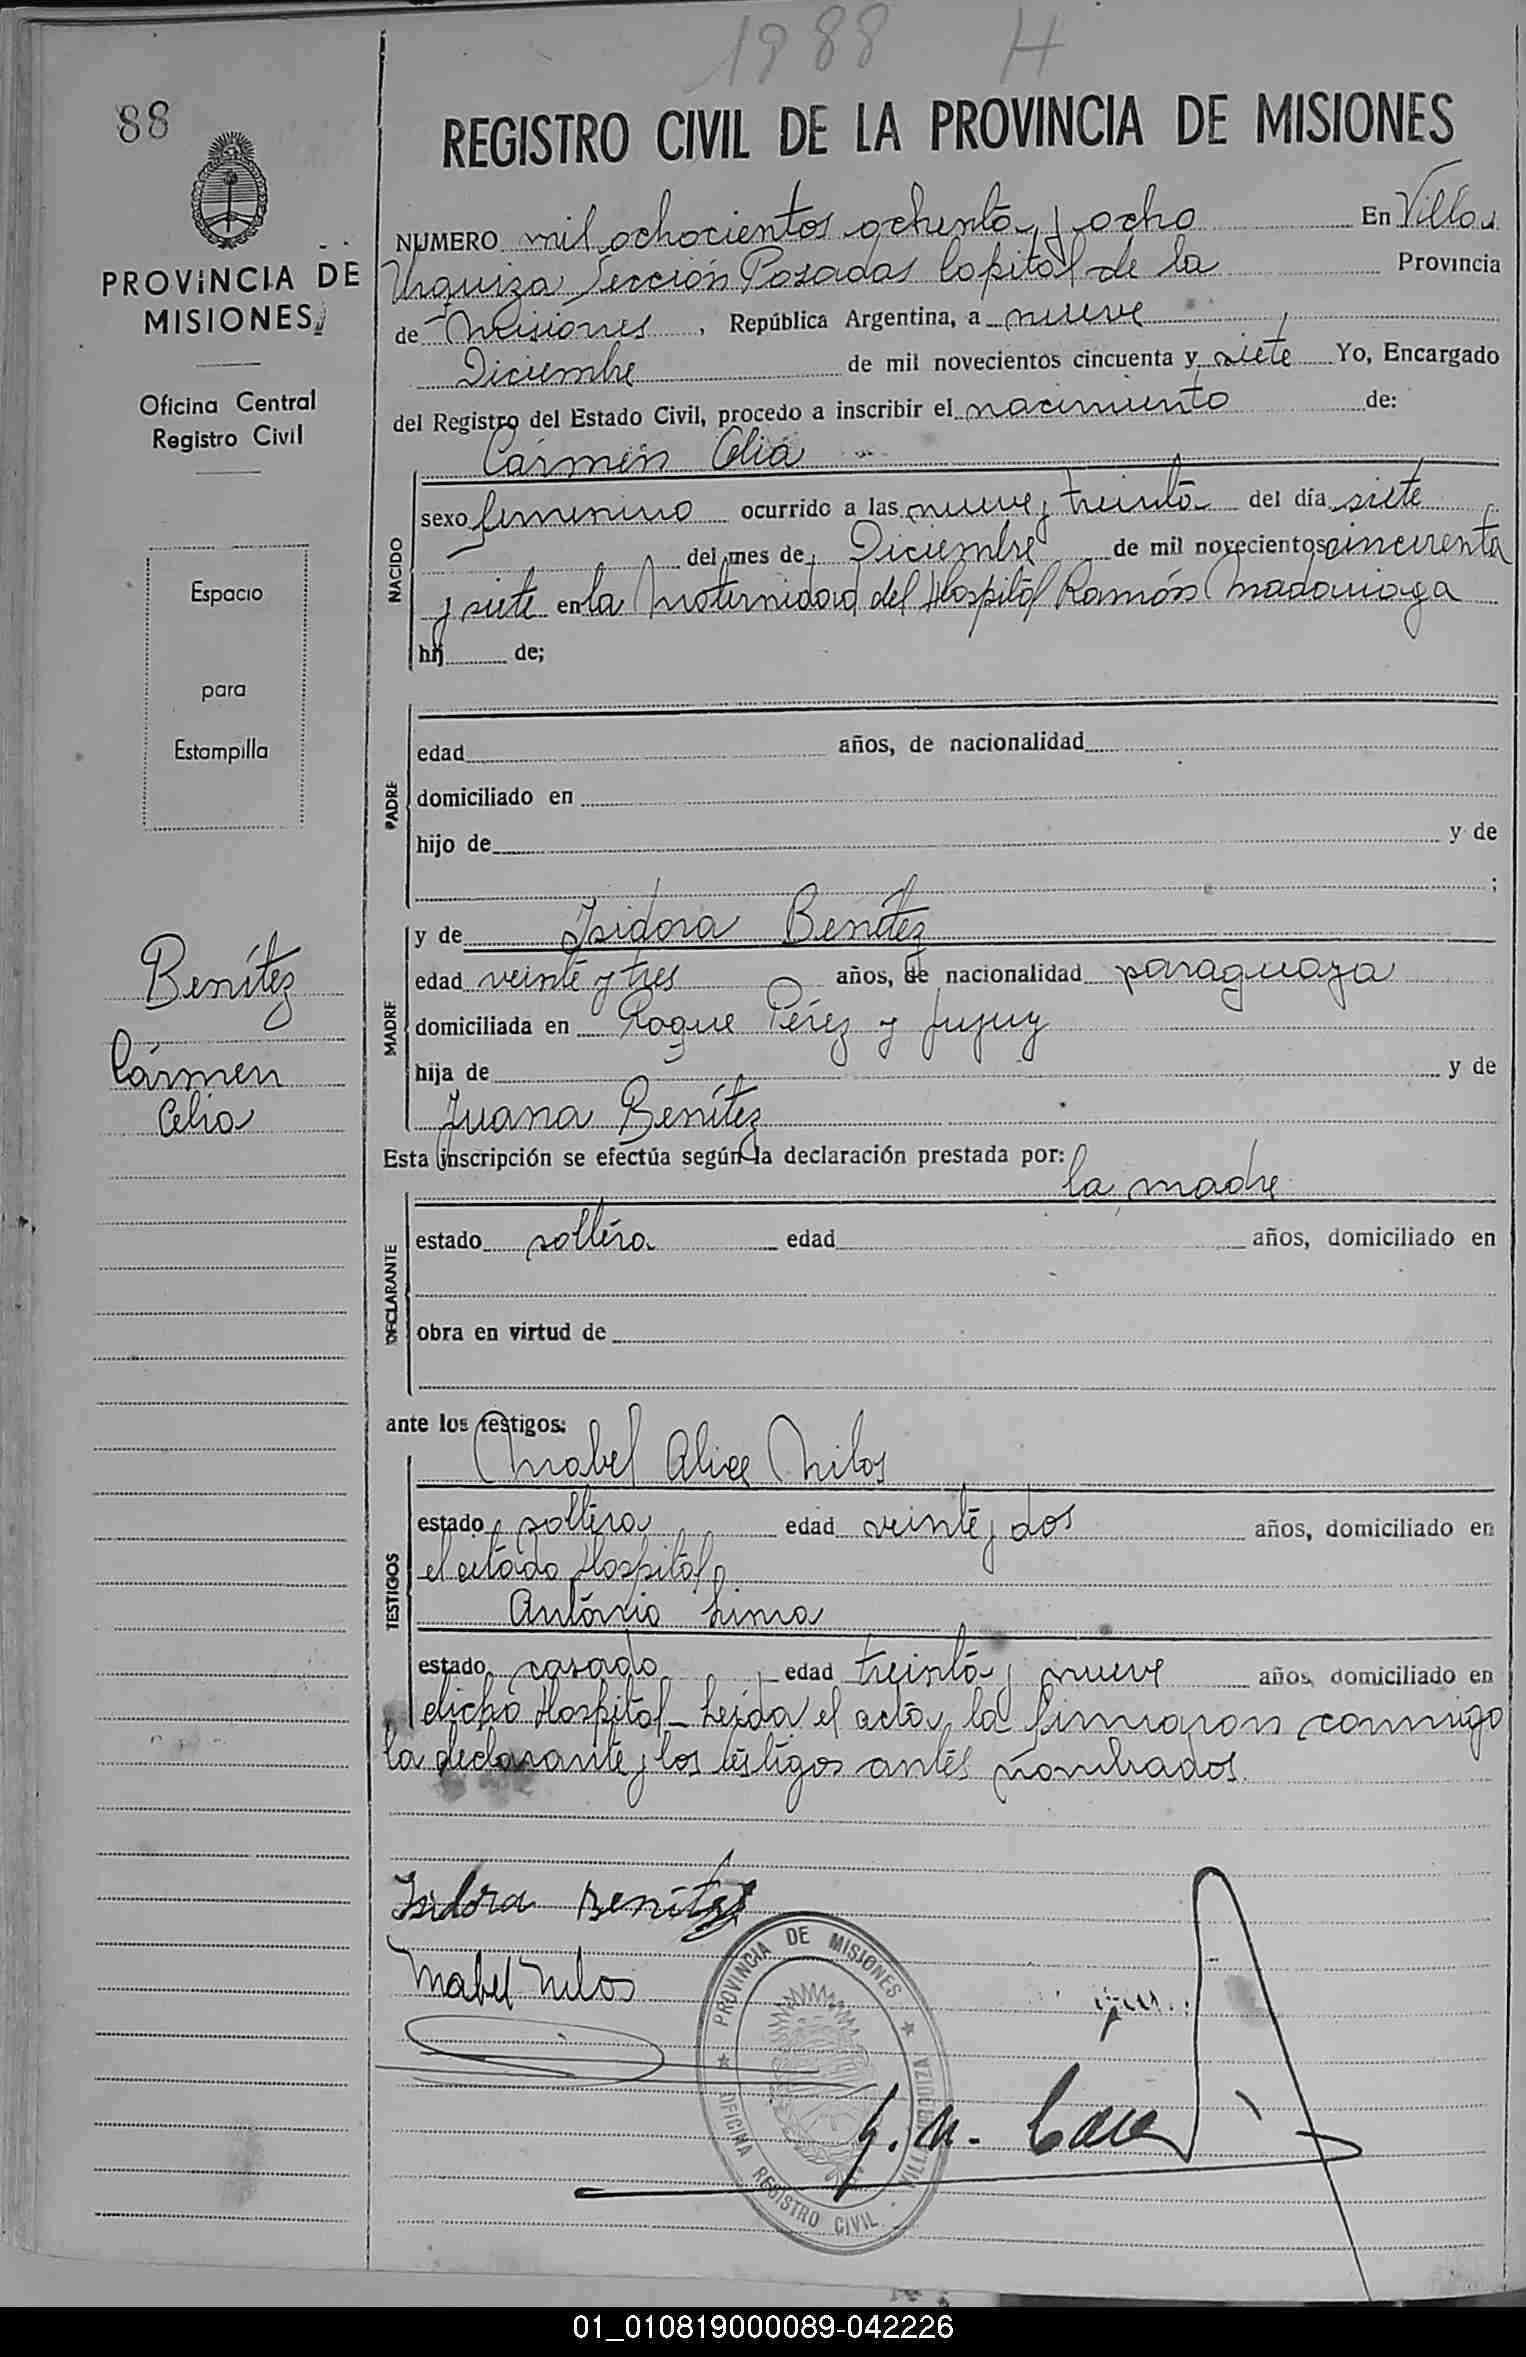 1988 H
88
REGISTRO CIVIL DE LA PROVINCIA DE MISIONES
PROVINCIA DE
MISIONES
Oficina Central
Registro Civil
Espacio
para
Estampilla
Benítez
Cármen
Celia
NUMERO mil ochocientos ochenta y ocho En Villa
Urquiza Sección Posadas Capital de la Provincia
de Misiones, República Argentina, a nueve
Diciembre de mil novecientos cincuenta y siete Yo, Encargado
del Registro del Estado Civil, procedo a inscribir el nacimiento de:
Cármen Celia
NACIDO
sexo femenino ocurrido a las nueve y treinta del día siete
del mes de Diciembre de mil novecientos cincuenta
y siete en la Maternidad del Hospital Ramón Madariaga
hij de;
PADRE
edad años, de nacionalidad
domiciliado en
hijo de y de
;
MADRE
y de Isidora Benítez
edad veinte y tres años, de nacionalidad paraguaya
domiciliada en Roque Pérez y Jujuy
hija de y de
Juana Benítez
Esta inscripción se efectúa según la declaración prestada por:
la madre
DECLARANTE
estado soltera edad años, domiciliado en
obra en virtud de
ante los testigos:
TESTIGOS
Mabel Alice Milos
estado soltera edad veinte y dos años, domiciliado en
el citado Hospital
Antonio Lima
estado casado edad treinta y nueve años, domiciliado en
dicho Hospital_ Leida el acta, la firmaron conmigo
la declarante y los testigos antes nombrados.
Isidora Benítez
Mabel Milos
PROVINCIA DE MISIONES
OFICINA REGISTRO CIVIL
VILLA URQUIZA
01_010819000089-042226